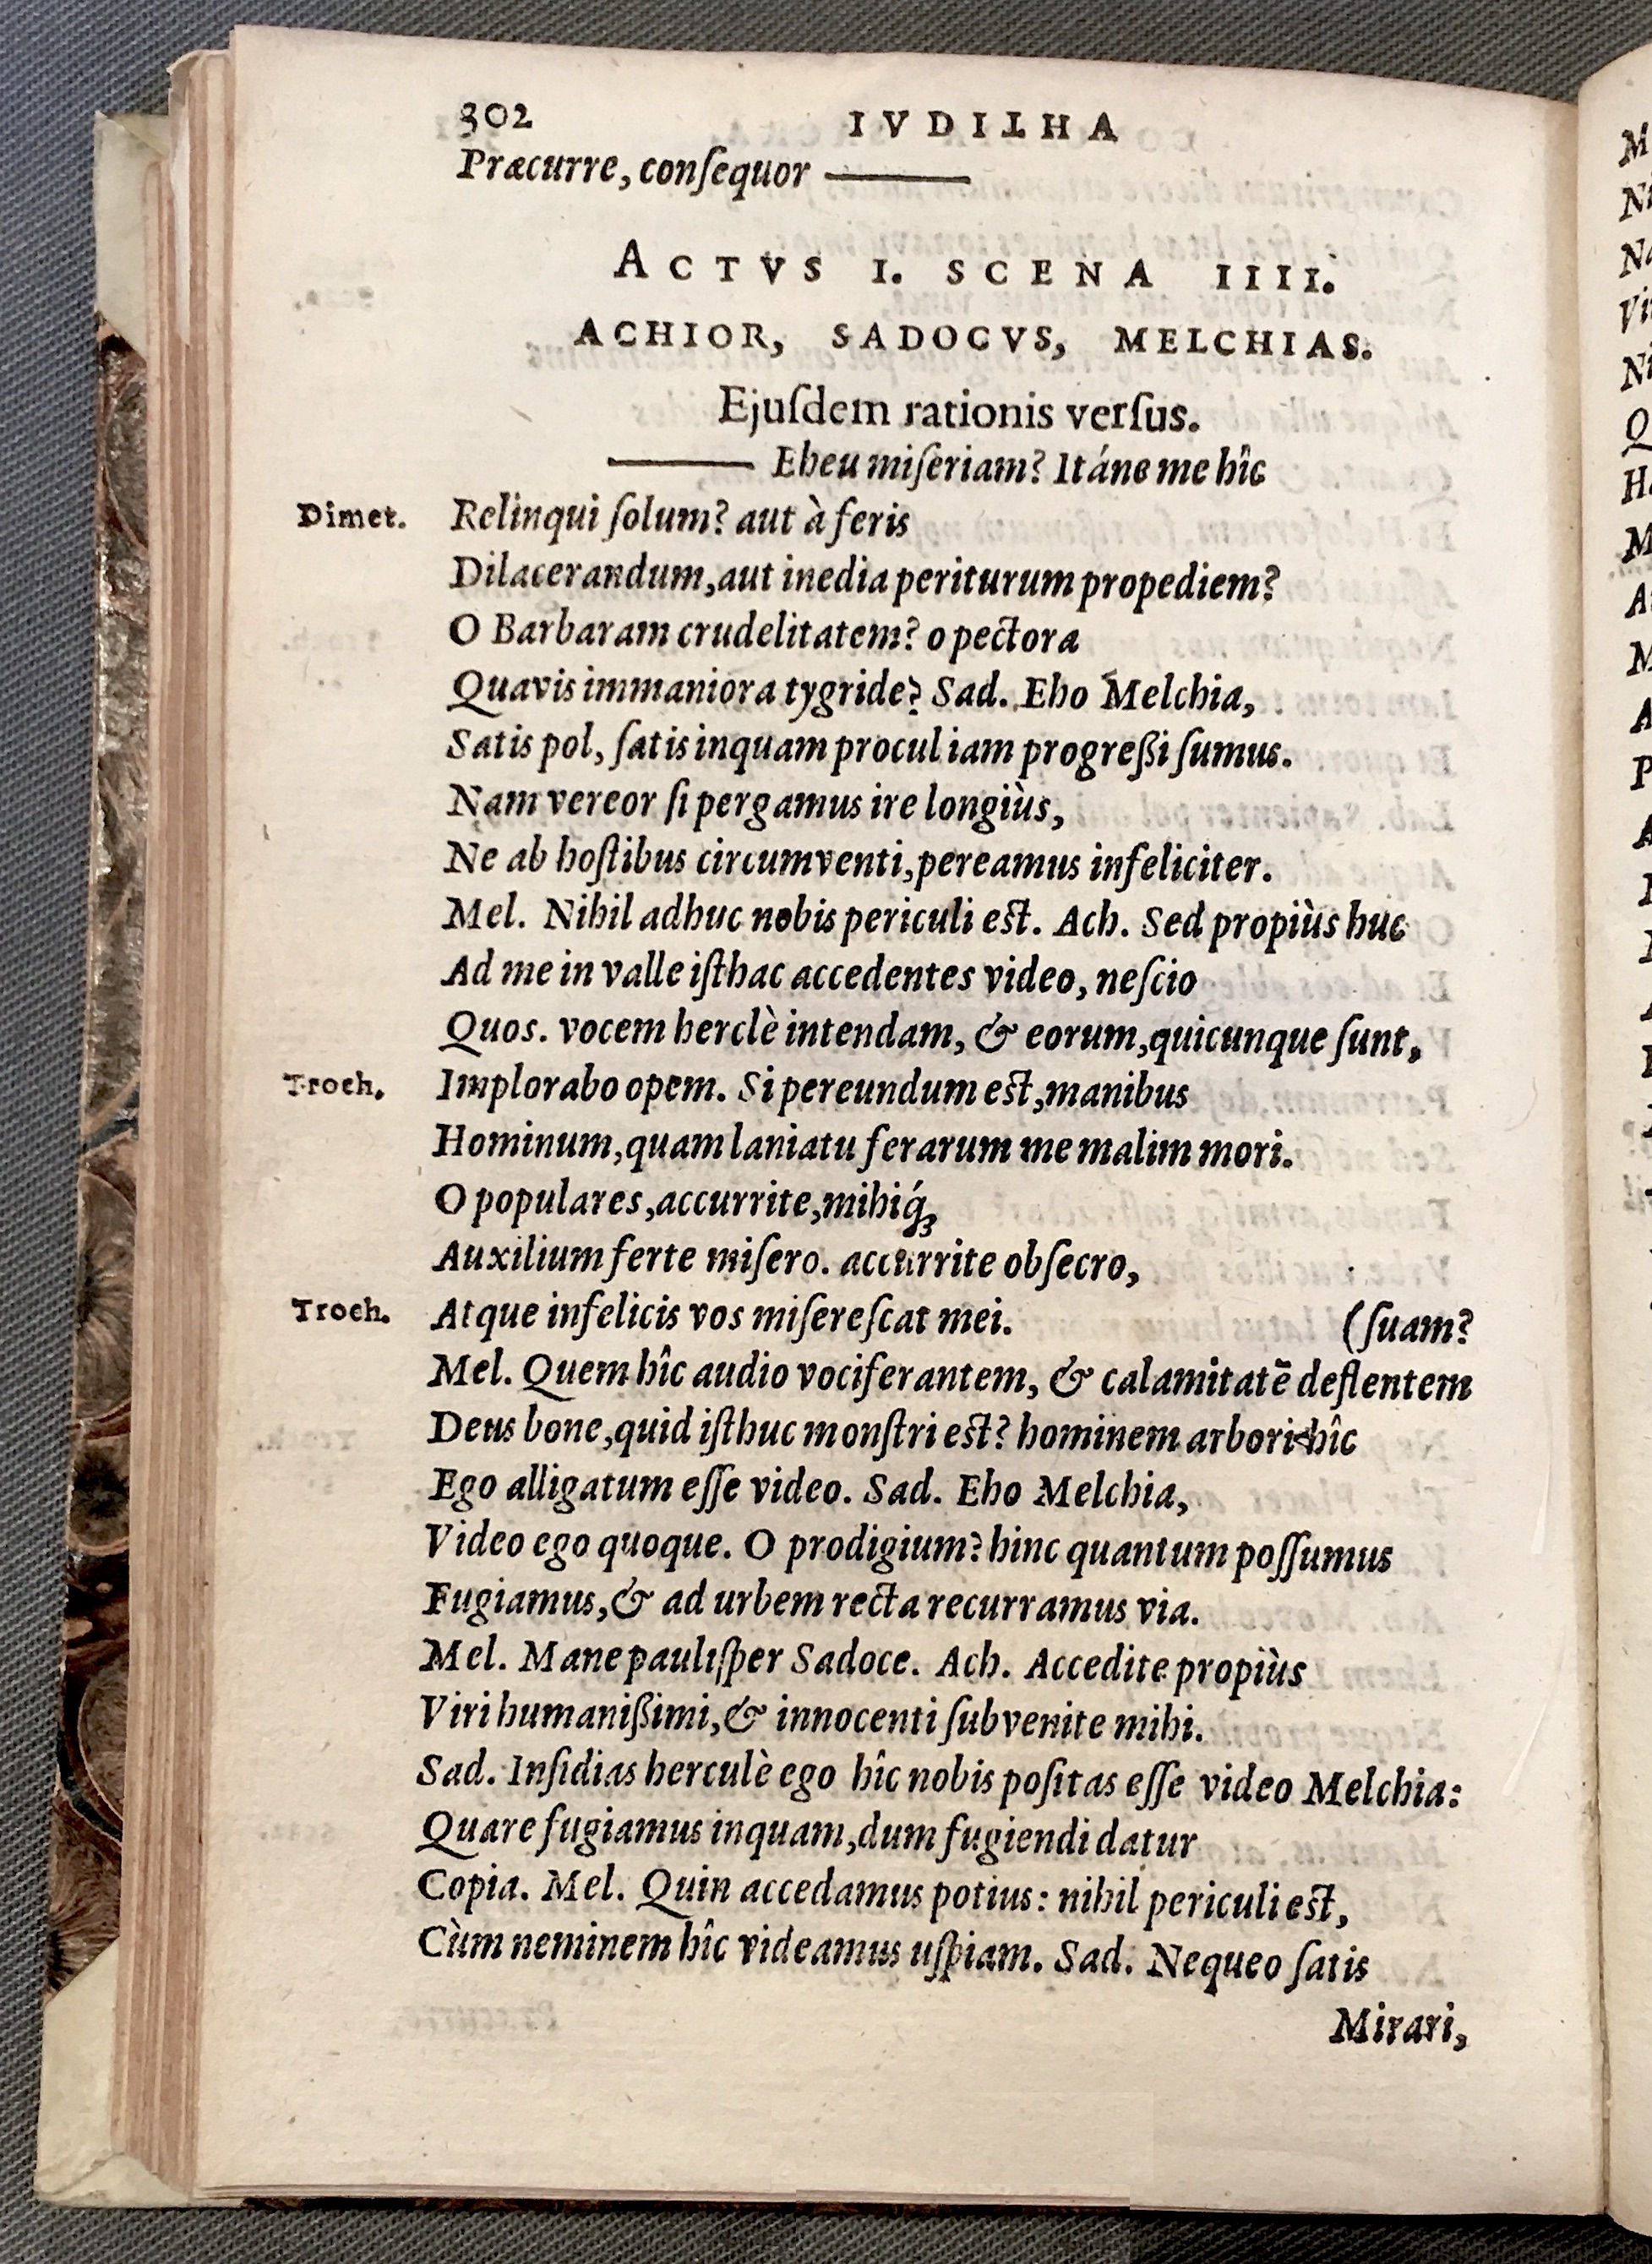 302 IVDITHA
Præcurre, conſequor ———
ACTVS I. SCENA IIII.
ACHIOR, SADOCVS, MELCHIAS.
Ejuſdem rationis verſus.
——— Eheu miſeriam? Itáne me hîc
Dimet. Relinqui ſolum? aut à feris
Dilacerandum, aut inedia periturum propediem?
O Barbaram crudelitatem? o pectora
Quavis immaniora tygride? Sad. Eho Melchia,
Satis pol, ſatis inquam procul iam progreßi ſumus.
Nam vereor ſi pergamus ire longiùs,
Ne ab hoſtibus circumventi, pereamus infeliciter.
Mel. Nihil adhuc nobis periculi est. Ach. Sed propiùs huc
Ad me in valle iſthac accedentes video, neſcio
Quos. vocem herclè intendam, & eorum, quicunque ſunt,
Troch. Implorabo opem. Si pereundum est, manibus
Hominum, quam laniatu ferarum me malim mori.
O populares, accurrite, mihiq́;
Auxilium ferte miſero. accurrite obſecro,
Troch. Atque infelicis vos miſereſcat mei. (ſuam?
Mel. Quem hîc audio vociferantem, & calamitatē deflentem
Deus bone, quid iſthuc monſtri est? hominem arbori hîc
Ego alligatum eſſe video. Sad. Eho Melchia,
Video ego quoque. O prodigium? hinc quantum poſſumus
Fugiamus, & ad urbem recta recurramus via.
Mel. Mane pauliſper Sadoce. Ach. Accedite propiùs
Viri humanißimi, & innocenti ſubvenite mihi.
Sad. Inſidias herculè ego hîc nobis poſitas eſſe video Melchia:
Quare fugiamus inquam, dum fugiendi datur
Copia. Mel. Quin accedamus potius: nihil periculi est,
Cùm neminem hîc videamus uſpiam. Sad. Nequeo ſatis
Mirari,